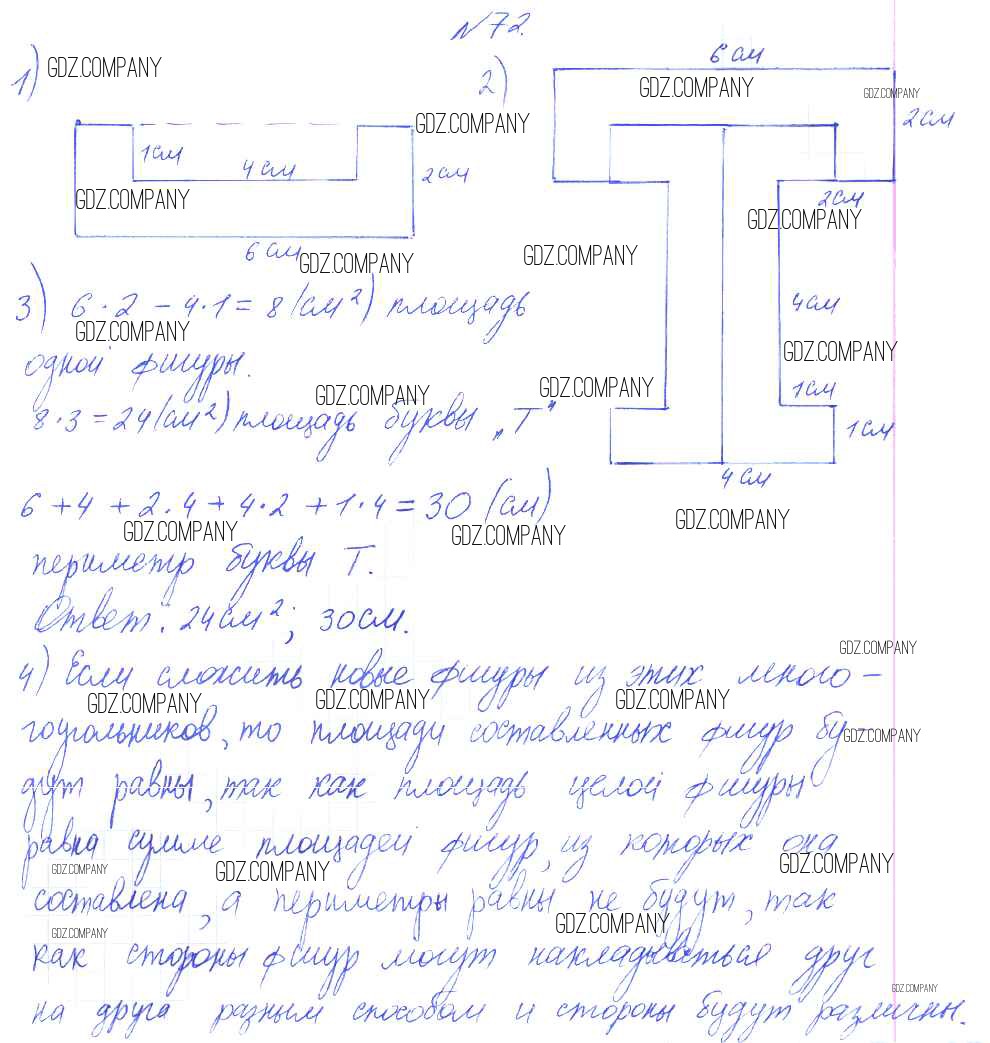 №72.
1) GDZ.COMPANY
2)
6 см
GDZ.COMPANY
GDZ.COMPANY
2см
GDZ.COMPANY
1см
4 см
2см
GDZ.COMPANY
2см
GDZ.COMPANY
6 см
GDZ.COMPANY
GDZ.COMPANY
3) 6·2 - 4·1 = 8 (см²) площадь
4см
GDZ.COMPANY
GDZ.COMPANY
одной фигуры.
GDZ.COMPANY
GDZ.COMPANY
1см
8·3 = 24 (см²) площадь буквы „Т"
1см
4 см
6 + 4 + 2·4 + 4·2 + 1·4 = 30 (см)
GDZ.COMPANY
GDZ.COMPANY
GDZ.COMPANY
периметр буквы Т.
Ответ: 24см²; 30см.
GDZ.COMPANY
4) Если сложить новые фигуры из этих много-
GDZ.COMPANY
GDZ.COMPANY
GDZ.COMPANY
гоугольников, то площади составленных фигур бу-
GDZ.COMPANY
дут равны, так как площадь целой фигуры
равна сумме площадей фигур, из которых она
GDZ.COMPANY
GDZ.COMPANY
GDZ.COMPANY
составлена, а периметры равны не будут, так
GDZ.COMPANY
GDZ.COMPANY
как стороны фигур могут накладываться друг
GDZ.COMPANY
на друга разным способом и стороны будут различны.